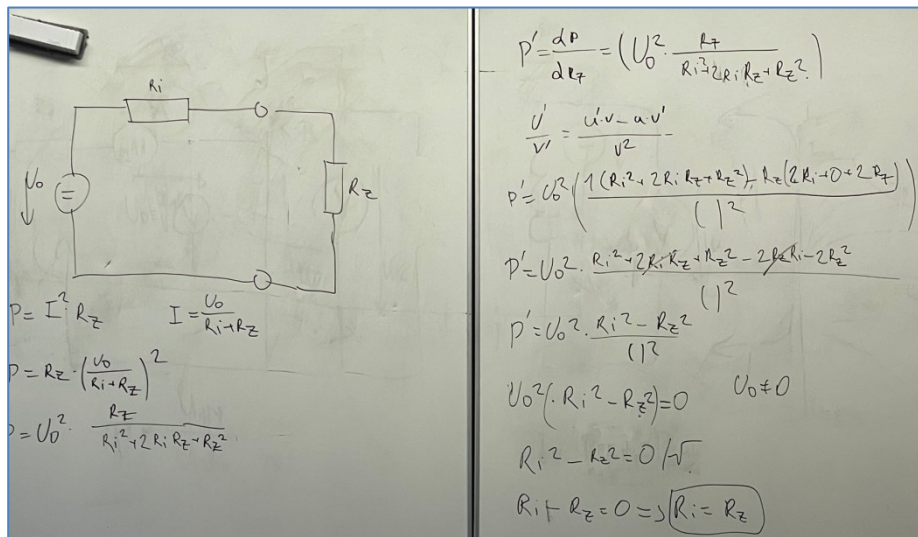 Ri
U₀
Rz
P = I² · Rz    I = U₀/(Ri+Rz)
P = Rz · (U₀/(Ri+Rz))²
P = U₀² · Rz/(Ri²+2RiRz+Rz²)
P' = dP/dRz = (U₀² · Rz/(Ri²+2RiRz+Rz²))
U'/V' = (u'·v - u·v')/v²
P' = U₀²((1(Ri²+2RiRz+Rz²) - Rz(2Ri+0+2Rz))/( )²)
P' = U₀² · (Ri²+2RiRz+Rz²-2RzRi-2Rz²)/( )²
P' = U₀² · (Ri²-Rz²)/( )²
U₀²(·Ri²-Rz²)=0    U₀≠0
Ri²-Rz²=0/√
Ri+Rz=0 => Ri=Rz